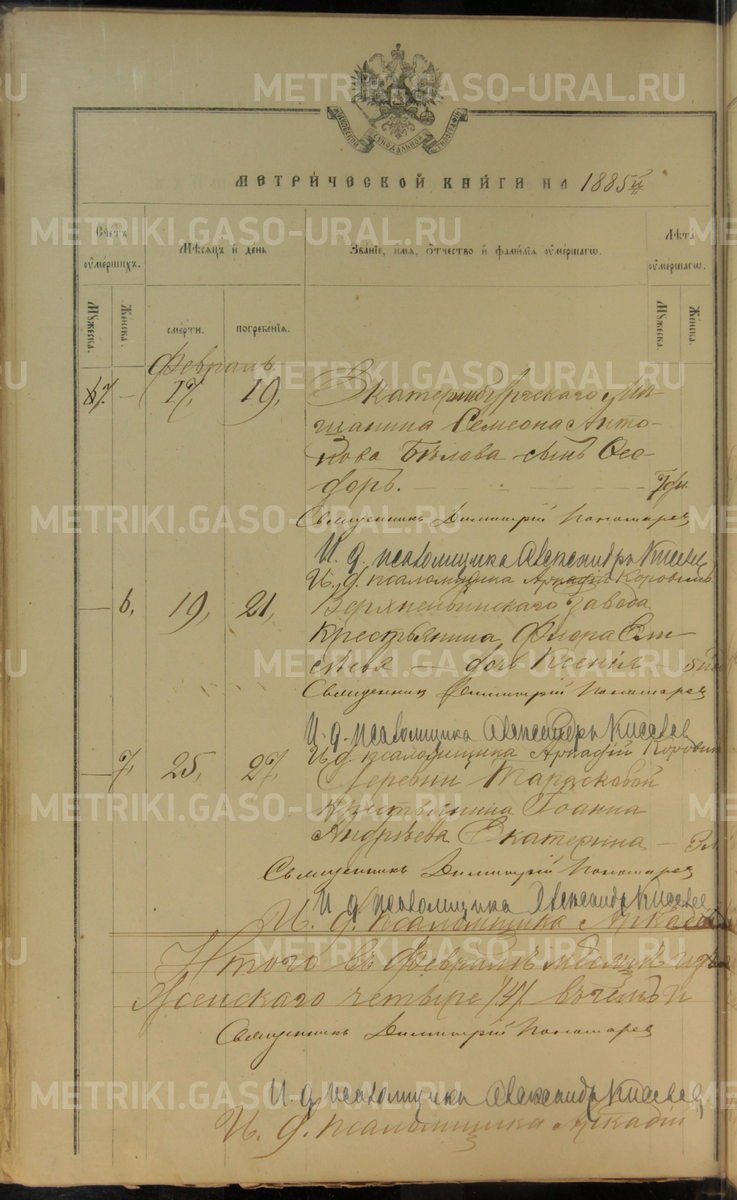 МЕТРИ́ЧЕСКОЙ КНИ́ГИ НА 1885й
Счетъ оумершихъ.
Мѣсяцъ и день
Званіе, имя, отчество и фамилія оумершагѡ.
Лѣта оумершагѡ.
Мужеска.
Женска.
смерти.
погребенія.
Мужеска.
Женска.
Февраль
7. — 17, 19, Екатеринбургскаго Мѣ-
щанина Семеона Анто-
нова Бѣлова сынъ Ѳео-
доръ.
Священникъ Димитрій Пономарев
И. д. псаломщика Александръ Киселев
И. д. псаломщика Аркадій Коровинъ
— 6, 19, 21, Верхнейвинскаго завода
крестьянина Флора Ели-
сѣева — дочь Ксенія —
Священникъ Димитрій Пономарев
И. д. псаломщика Александръ Киселев
И. д. псаломщика Аркадій Коровин
— 7, 25, 27, Деревни Тарасковой
крестьянина Іоанна
Андрѣева Екатерина —
Священникъ Димитрій Пономарев
И. д. псаломщика Александръ Киселев
И. д. псаломщика Аркадій
Итого въ Февралѣ мѣсяцѣ
Женскаго четыре /4/
Священникъ Димитрій Пономарев
И. д. псаломщика Александръ Киселев
И. д. псаломщика Аркадій
METRIKI.GASO-URAL.RU